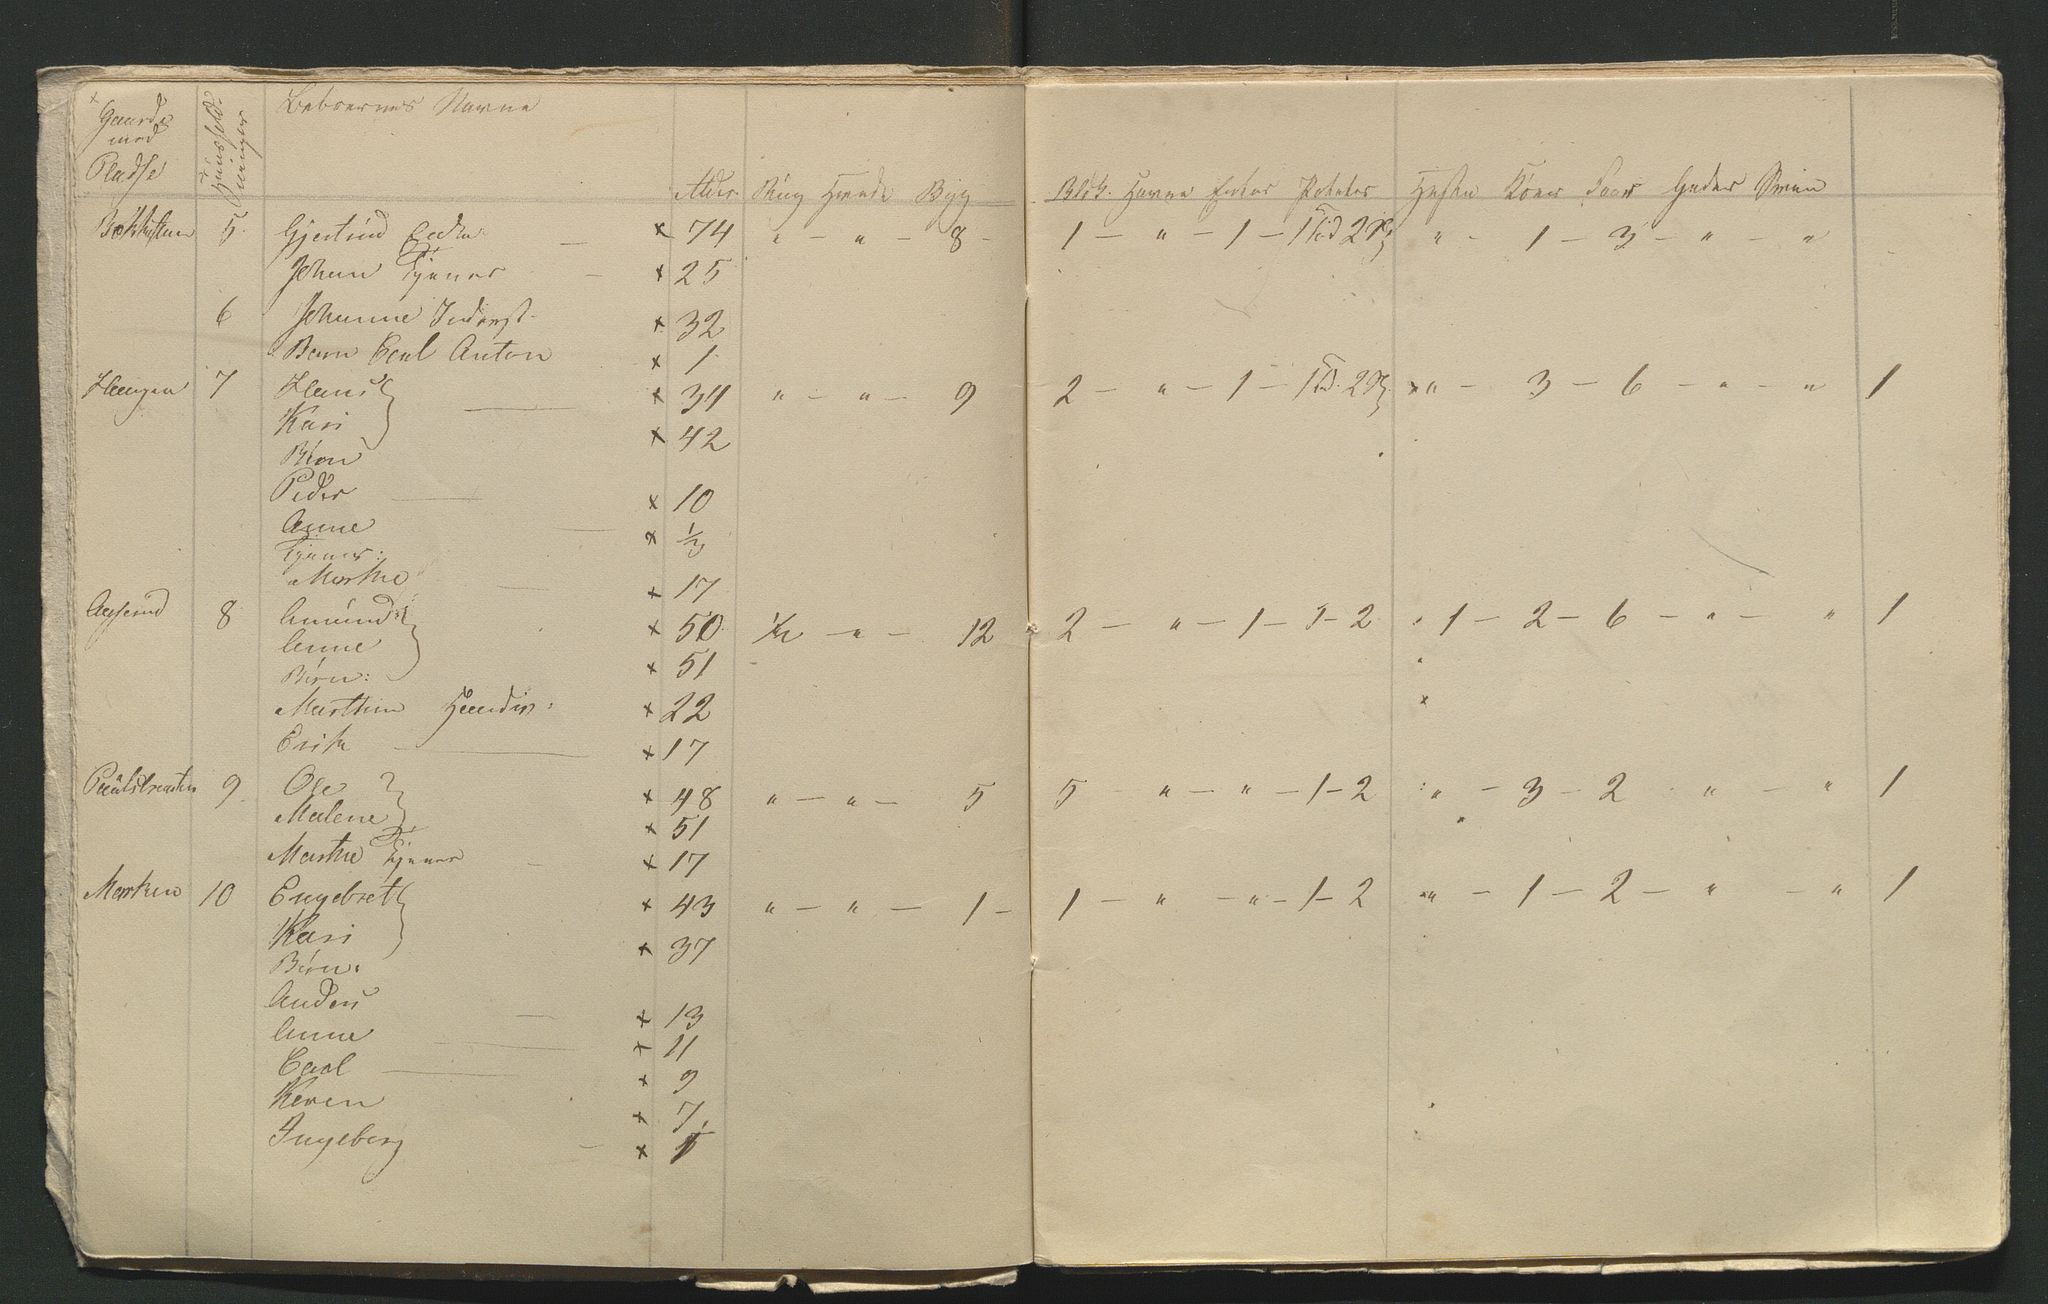 Gaarde Huusholdninger Beboernes Navne
med
Pladse
Alder Rug Hvede Byg Bl:K. Havre Erter Poteter Heste Köer Faar Geder Sviin
5 Gjertrud Enke × 74 " — " — 8 — 1 — " — 1 — 1 Td 2 " — 1 — 3 — " — "
Johan Tjener — × 25
6 Johanne Inderst × 32
Barn Carl Anton × 1
Haugen 7 Hans × 34 " — " — 9 2 — " — 1 — 1 Td. 2 " — 3 — 6 — " — " 1
Kari × 42
Börn
Peder × 10
Anne × 1/3
Tjener:
Marthe × 17
8 Amund × 50 1/2 — " — 12 2 — " — 1 — 1 — 2 1 — 2 — 6 — " — " 1
Anne × 51
Börn:
Marthin × 22
Erik × 17
9 Ole × 48 " — " — 5 5 — " — " — 1 — 2 " — 3 — 2 " — " 1
Malene × 51
Marthe Tjener × 17
Marken 10 Engebret × 43 " — " — 1 — 1 — " — " — 1 — 2 " — 1 — 2 — " — " 1
Kari × 37
Börn:
Anders × 13
Anne × 11
Carl × 9
Karen × 7
Ingeborg ×